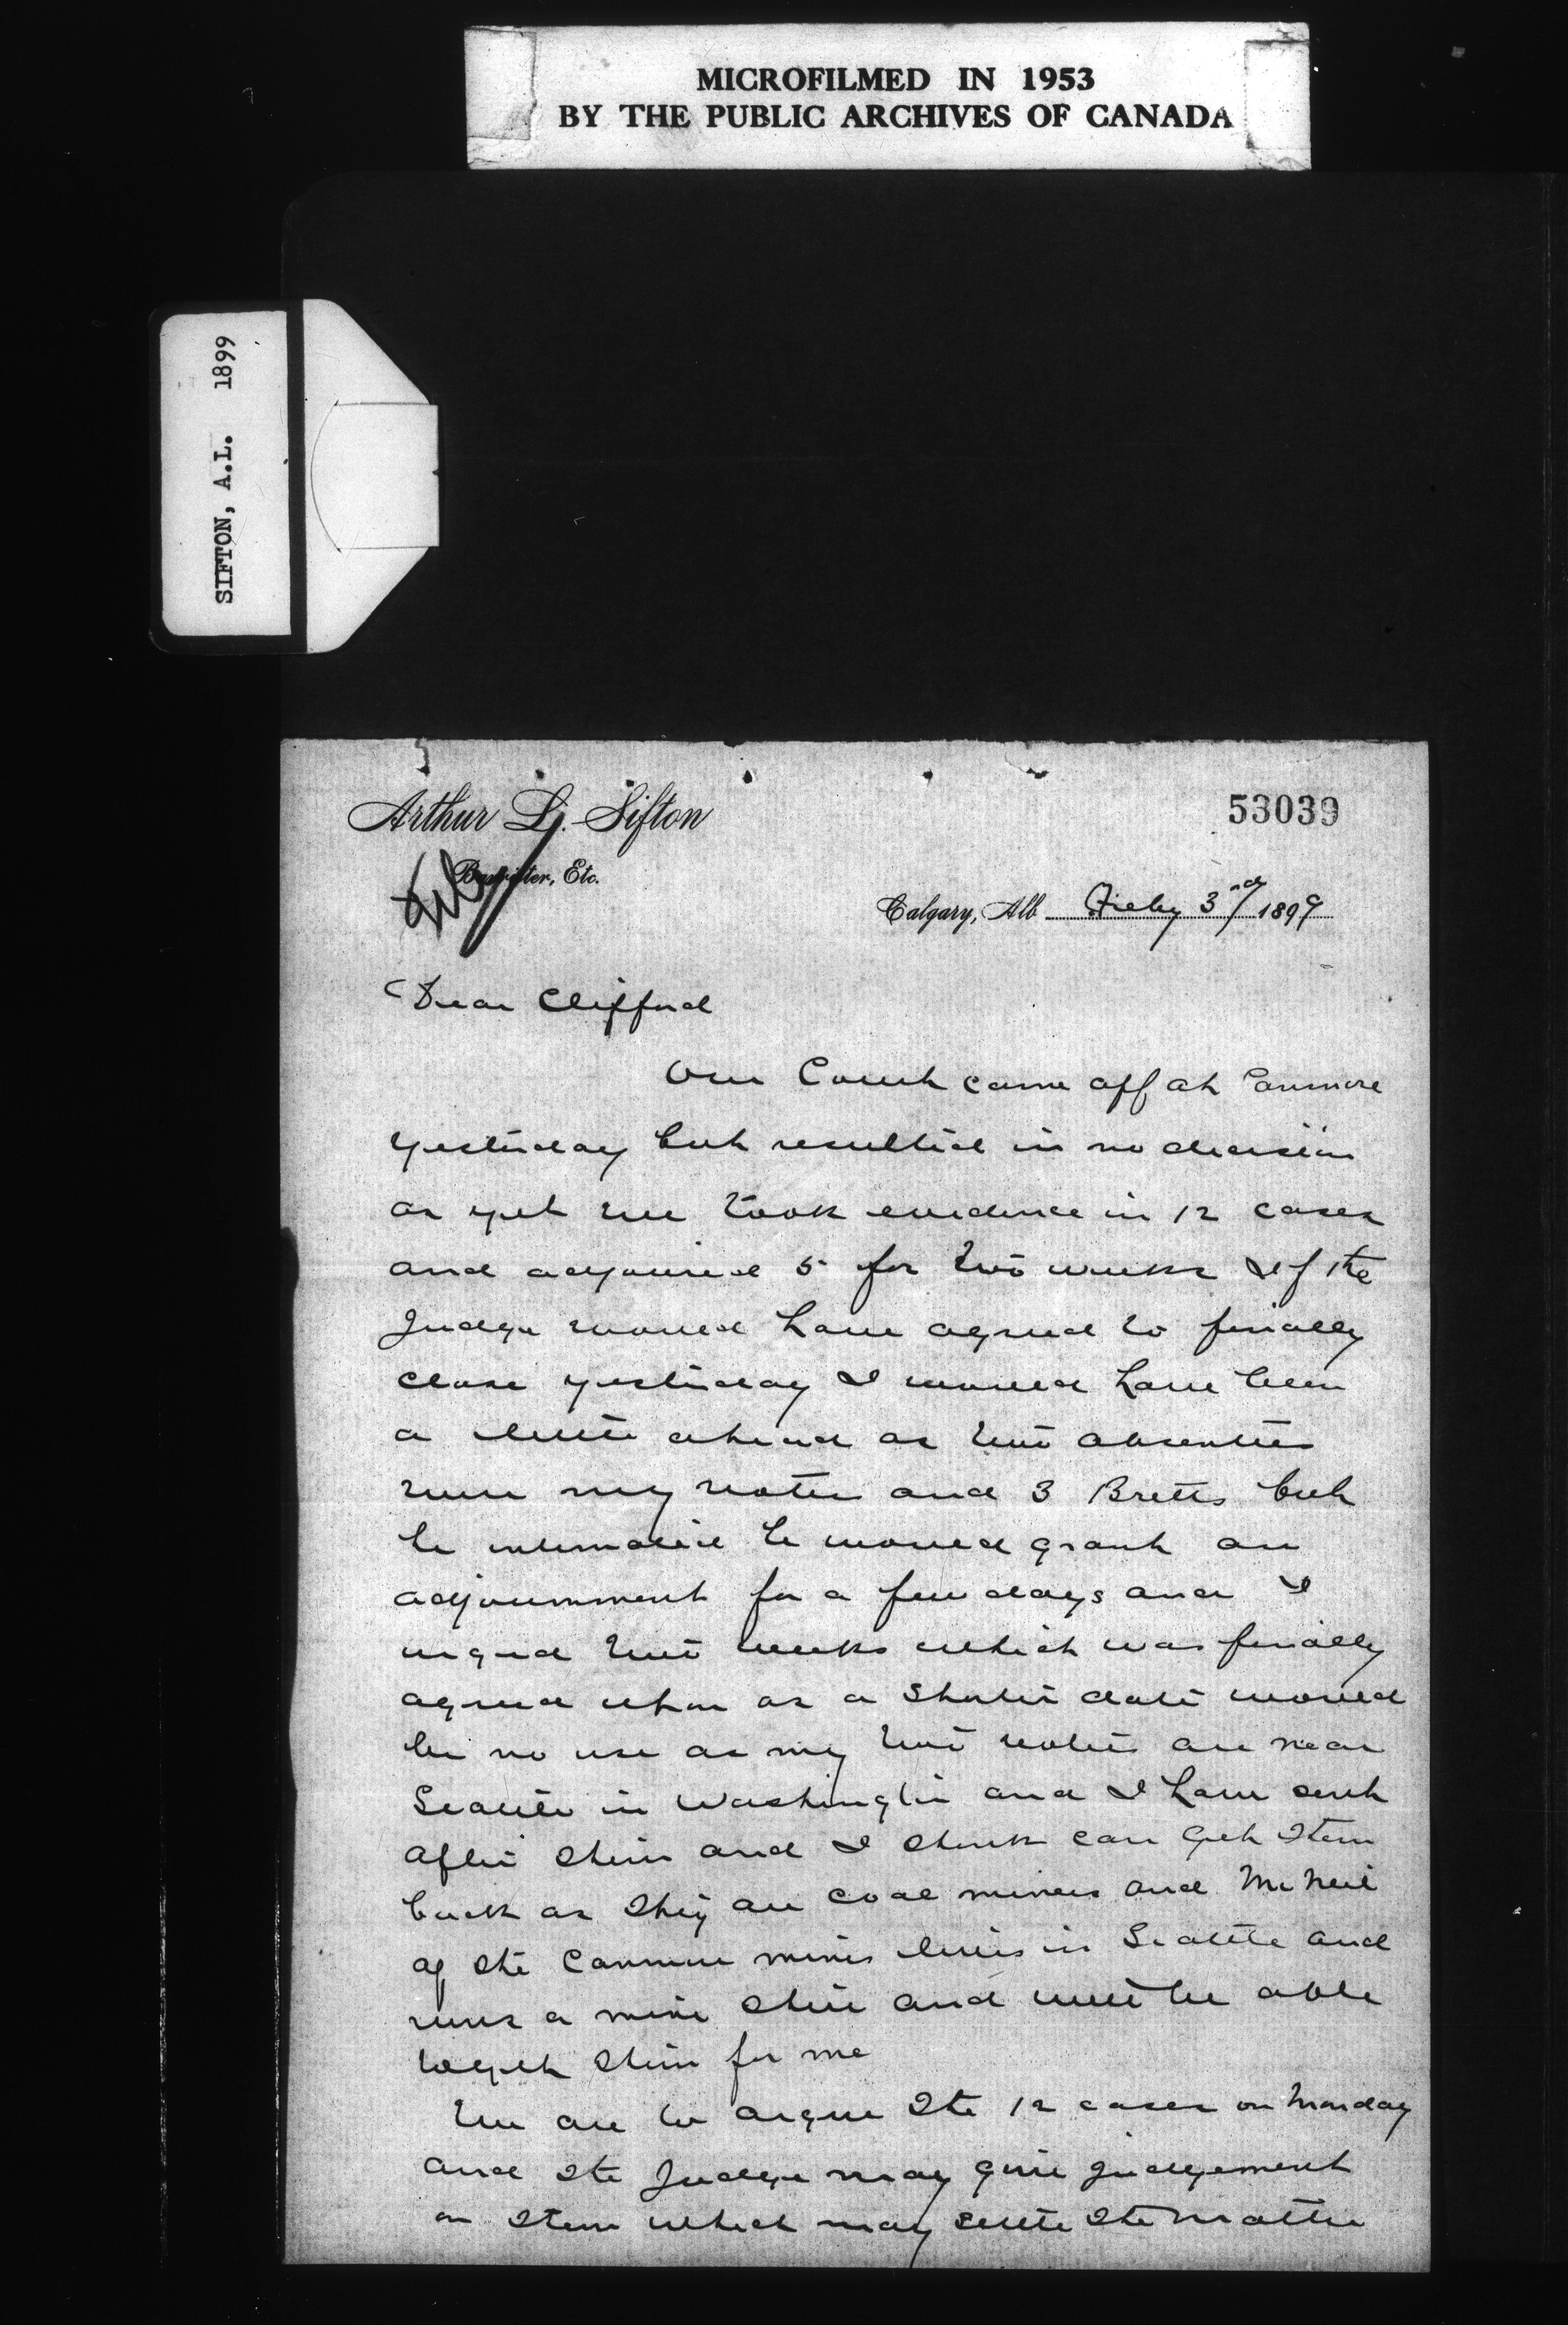 MICROFILMED IN 1953
BY THE PUBLIC ARCHIVES OF CANADA
SIFTON, A.L. 1899
Arthur L. Sifton
53039
Barrister, Etc.
Calgary, Alb Feby 3rd 1899
Dear Clifford
Our Court came off at Canmore
yesterday but resulted in no decision
as yet we took evidence in 12 cases
and adjourned 5 for two weeks If the
Judge would have agreed to finally
close yesterday I would have been
a little ahead as two absentees
were my votes and 3 Bretts but
he intimated he would grant an
adjournment for a few days and I
urged two weeks which was finally
agreed upon as a shorter date would
be no use as my two voters are near
Seattle in Washington and I have sent
after them and I think can get them
back as they are coal miners and McNeil
of the Canmore mines lives in Seattle and
runs a mine there and will be able
to get them for me
We are to argue the 12 cases on Monday
and the Judge may give judgement
on them which may settle the matter